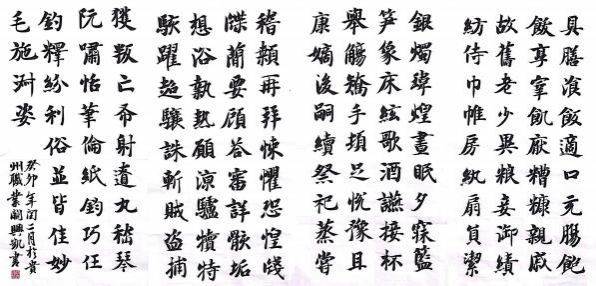 具膳飡飯適口充腸飽
飫享宰飢厭糟糠親戚
故舊老少異粮妾御績
紡侍巾帷房紈扇員潔
銀燭煒煌晝眠夕寐藍
笋象床絃歌酒讌接杯
舉觴矯手頓足悅豫且
康嫡後嗣續祭祀蒸嘗
稽顙再拜悚懼恐惶牋
牒簡要顧答審詳骸垢
想浴執熱願涼驢犢特
駭躍超驤誅斬賊盜捕
獲叛亡布射遼丸嵇琴
阮嘯恬筆倫紙鈞巧任
釣釋紛利俗並皆佳妙
毛施淑姿
癸卯年閏二月於貴
州職業閻興凱書